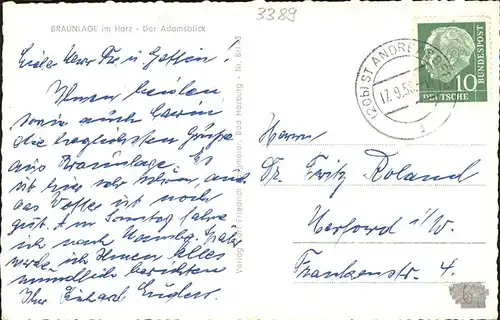 BRAUNLAGE im Harz - Der Adamsblick
3389
Lieber Herr Dr. u. Gattin!
Ihnen beiden
sowie auch Karin
die herzlichsten Grüße
aus Braunlage. Es
ist hier sehr schön, auch
das Wetter ist noch
gut. Am Sonntag fahre
ich nach Hamburg. Später
werde ich Ihnen alles
mündlich berichten
Ihr
(20b) ST ANDREASBERG
17.9.56
10
DEUTSCHE
BUNDESPOST
Bad Harzburg - Nr.
Herrn
Dr. Fritz Roland
Herford i/W.
Frankenstr. 4.